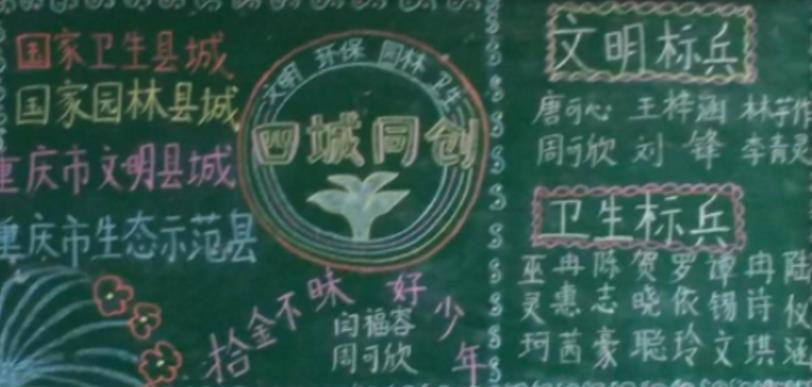 国家卫生县城
国家园林县城
重庆市文明县城
重庆市生态示范县
文明 环保 园林 卫生
四城同创
拾金不昧 好少年
闫福容
周可欣
文明标兵
唐可心 王梓涵 林
周可欣 刘锋 李青
卫生标兵
巫冉陈贺罗谭冉陆
灵惠志晓依锡诗
珂茜豪聪玲文琪涵